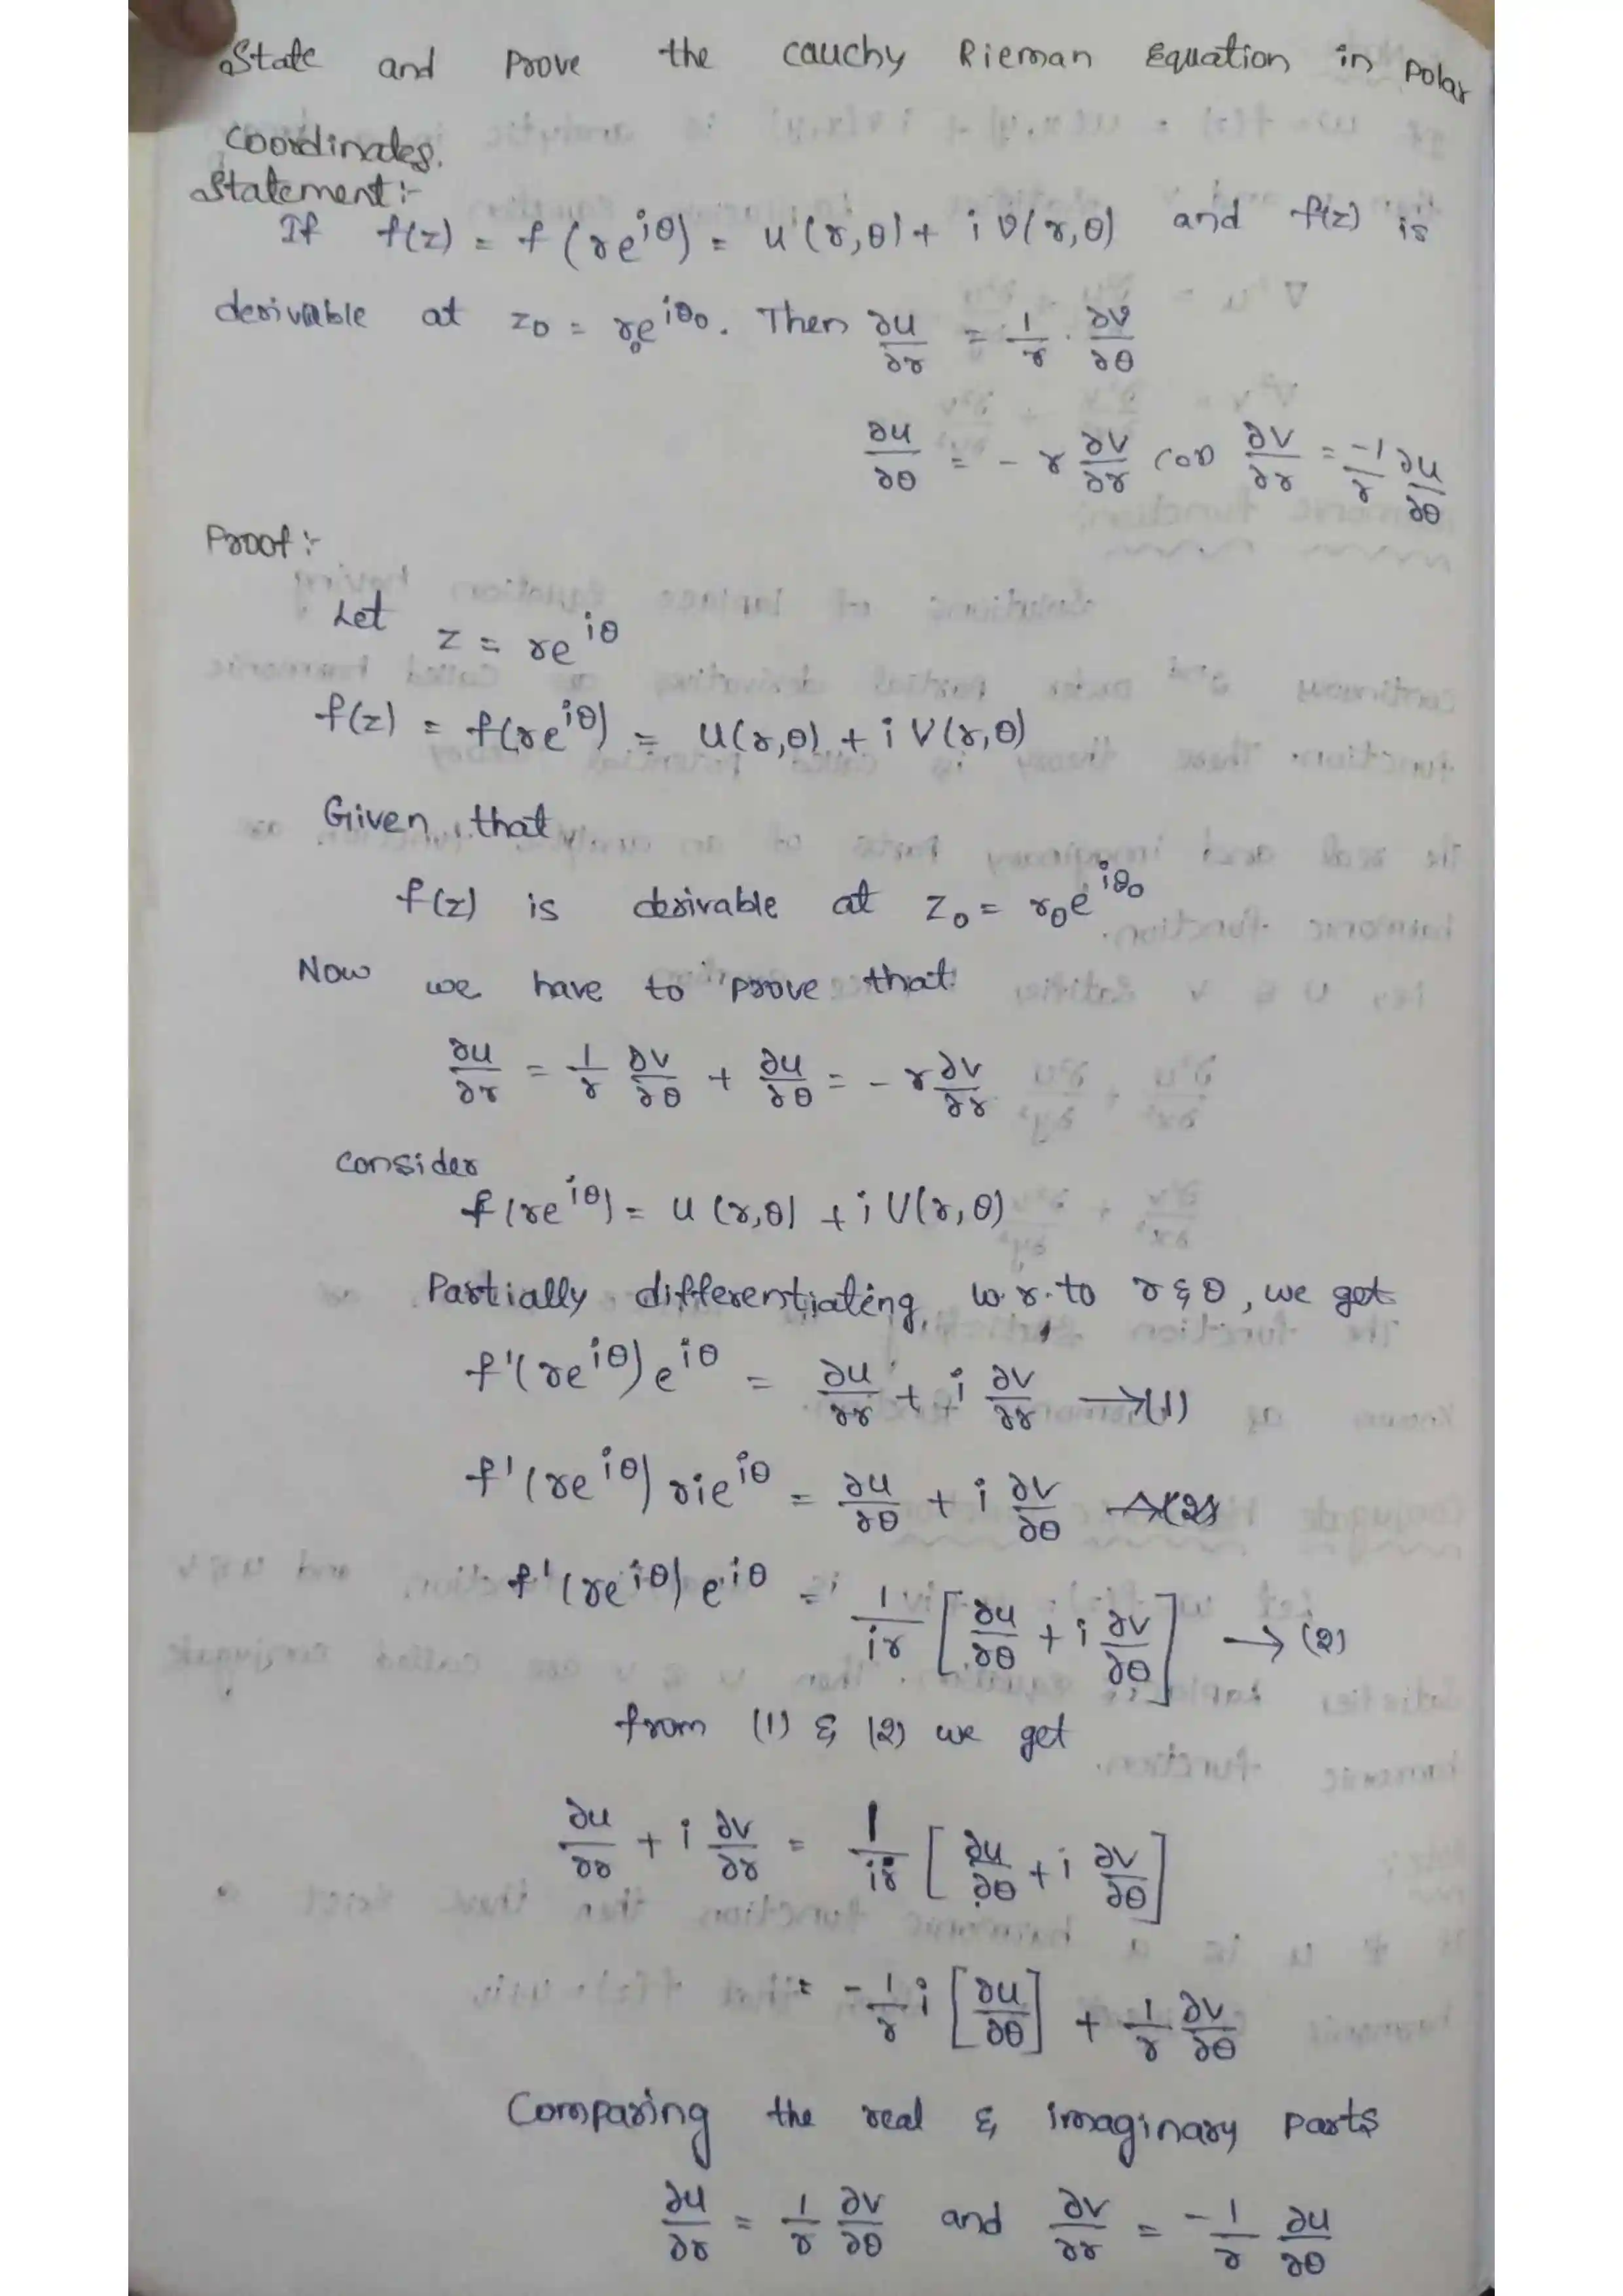 State and Prove the Cauchy Rieman Equation in Polar
Coordinates.
Statement :-
If f(z) = f(re^{iθ}) = u(r,θ) + i v(r,θ) and f(z) is
derivable at z₀ = r₀e^{iθ₀}. Then ∂u/∂r = 1/r · ∂v/∂θ
∂u/∂θ = - r ∂v/∂r (or) ∂v/∂r = -1/r ∂u/∂θ
Proof :-
Let z = re^{iθ}
f(z) = f(re^{iθ}) = u(r,θ) + i v(r,θ)
Given that
f(z) is derivable at z₀ = r₀e^{iθ₀}
Now we have to prove that
∂u/∂r = 1/r ∂v/∂θ + ∂u/∂θ = - r ∂v/∂r
consider
f(re^{iθ}) = u(r,θ) + i v(r,θ)
Partially differentiating w.r.to r & θ, we get
f'(re^{iθ}) e^{iθ} = ∂u/∂r + i ∂v/∂r → (1)
f'(re^{iθ}) rie^{iθ} = ∂u/∂θ + i ∂v/∂θ → (2)
f'(re^{iθ}) e^{iθ} = 1/ir [∂u/∂θ + i ∂v/∂θ] → (2)
from (1) & (2) we get
∂u/∂r + i ∂v/∂r = 1/ir [∂u/∂θ + i ∂v/∂θ]
= - 1/r i [∂u/∂θ] + 1/r ∂v/∂θ
Comparing the real & imaginary parts
∂u/∂r = 1/r ∂v/∂θ and ∂v/∂r = -1/r ∂u/∂θ